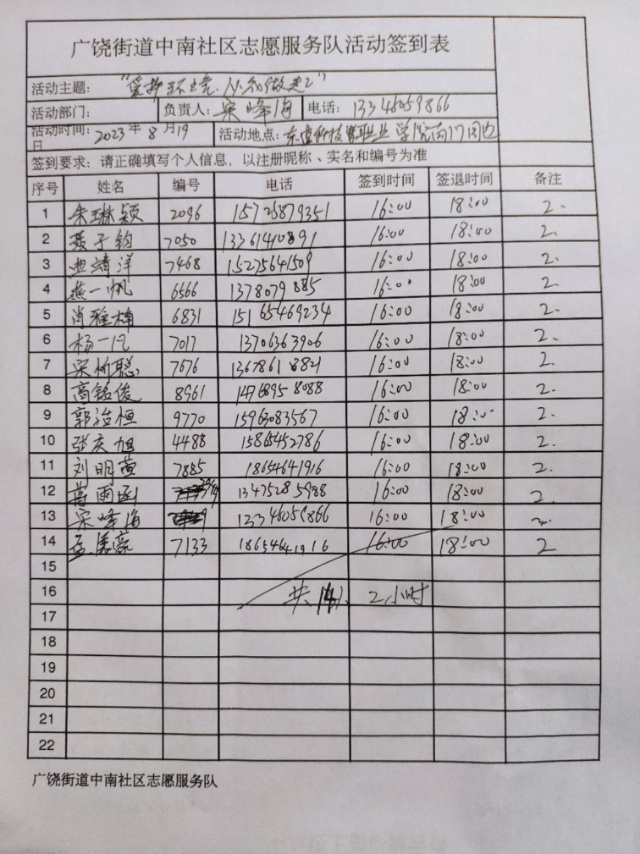 广饶街道中南社区志愿服务队活动签到表
活动主题：“爱护环境，从我做起”
活动部门： 负责人：宋峰海 电话：13346059866
活动时间：2023年8月19日 活动地点：东营科技职业学院南门周边
签到要求：请正确填写个人信息，以注册昵称、实名和编号为准
序号 姓名 编号 电话 签到时间 签退时间 备注
1 朱琳颖 2096 15725879351 16:00 18:00 2.
2 聂子钧 7050 13361410891 16:00 18:00 2.
3 曲靖洋 7468 15275641509 16:00 18:00 2.
4 燕一帆 6566 1378079 885 16:00 18:00 2.
5 尚雅楠 6831 15165469234 16:00 18:00 2.
6 杨一凡 7017 13706363906 16:00 18:00 2.
7 宋忻聪 7676 13678618821 16:00 18:00 2.
8 高铭俊 8961 14768958088 16:00 18:00 2.
9 郭治恒 9770 15963083567 16:00 18:00 2.
10 张庆旭 4488 15865452786 16:00 18:00 2.
11 刘明萱 7885 18654641916 16:00 18:00 2.
12 雨函 13475285988 16:00 18:00 2.
13 宋峰海 13346059866 16:00 18:00 2.
14 孟 7133 18654641916 16:00 18:00 2
15
16 共14人 2小时
17
18
19
20
21
22
广饶街道中南社区志愿服务队